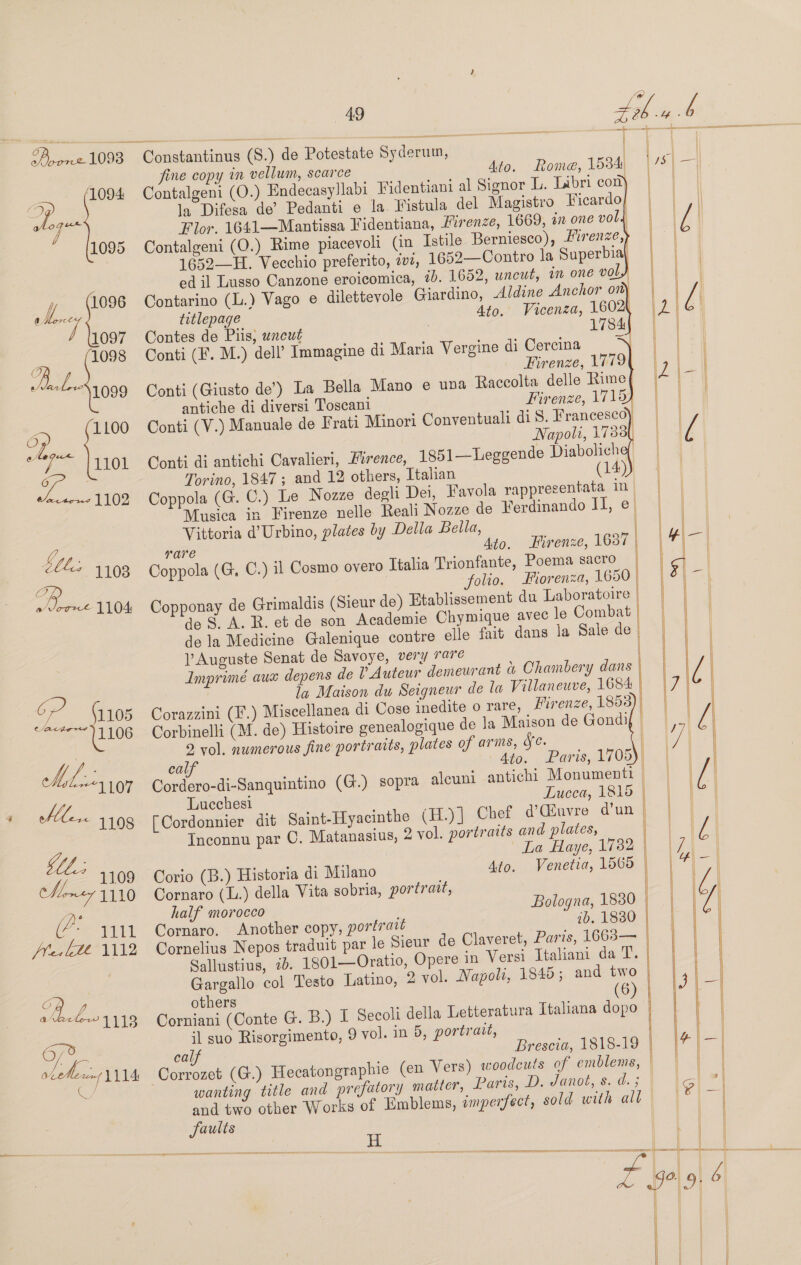 49
1093 Constantinus (S.) de Potestate Syderum,
fine copy in vellum, scarce 4to. Romæ, 1534
1094 Contalgeni (O.) Endecasyllabi Fidentiani al Signor L. Libri con
la Difesa de' Pedanti e la Fistula del Magistro Ficardo
Flor. 1641—Mantissa Fidentiana, Firenze, 1669, in one vol.
1095 Contalgeni (O.) Rime piacevoli (in Istile Berniesco), Firenze,
1652—H. Vecchio preferito, ivi, 1652—Contro la Superbia
ed il Lusso Canzone eroicomica, ib. 1652, uncut, in one vol.
1096 Contarino (L.) Vago e dilettevole Giardino, Aldine Anchor on
titlepage 4to. Vicenza, 1602
1097 Contes de Piis, uncut 1784
1098 Conti (F. M.) dell' Immagine di Maria Vergine di Cercina
Firenze, 1779
1099 Conti (Giusto de') La Bella Mano e una Raccolta delle Rime
antiche di diversi Toscani Firenze, 1715
1100 Conti (V.) Manuale de Frati Minori Conventuali di S. Francesco
Napoli, 1733
1101 Conti di antichi Cavalieri, Firence, 1851—Leggende Diaboliche
Torino, 1847; and 12 others, Italian (14)
1102 Coppola (G. C.) Le Nozze degli Dei, Favola rappresentata in
Musica in Firenze nelle Reali Nozze de Ferdinando II, e
Vittoria d'Urbino, plates by Della Bella,
rare 4to. Firenze, 1637
1103 Coppola (G. C.) il Cosmo overo Italia Trionfante, Poema sacro
folio. Fiorenza, 1650
1104 Copponay de Grimaldis (Sieur de) Etablissement du Laboratoire
de S. A. R. et de son Academie Chymique avec le Combat
de la Medicine Galenique contre elle fait dans la Sale de
l'Auguste Senat de Savoye, very rare
Imprimé aux depens de l'Auteur demeurant à Chambery dans
la Maison du Seigneur de la Villaneuve, 1684
1105 Corazzini (F.) Miscellanea di Cose inedite o rare, Firenze, 1853
1106 Corbinelli (M. de) Histoire genealogique de la Maison de Gondi
2 vol. numerous fine portraits, plates of arms, &c.
calf 4to. Paris, 1705
1107 Cordero-di-Sanquintino (G.) sopra alcuni antichi Monumenti
Lucchesi Lucca, 1815
1108 [Cordonnier dit Saint-Hyacinthe (H.)] Chef d'Œuvre d'un
Inconnu par C. Matanasius, 2 vol. portraits and plates,
La Haye, 1732
1109 Corio (B.) Historia di Milano 4to. Venetia, 1565
1110 Cornaro (L.) della Vita sobria, portrait,
half morocco Bologna, 1830
1111 Cornaro. Another copy, portrait ib. 1830
1112 Cornelius Nepos traduit par le Sieur de Claveret, Paris, 1663—
Sallustius, ib. 1801—Oratio, Opere in Versi Italiani da T.
Gargallo col Testo Latino, 2 vol. Napoli, 1845; and two
others (6)
1113 Corniani (Conte G. B.) I Secoli della Letteratura Italiana dopo
il suo Risorgimento, 9 vol. in 5, portrait,
calf Brescia, 1818-19
1114 Corrozet (G.) Hecatongraphie (en Vers) woodcuts of emblems,
wanting title and prefatory matter, Paris, D. Janot, s. d.;
and two other Works of Emblems, imperfect, sold with all
faults
H